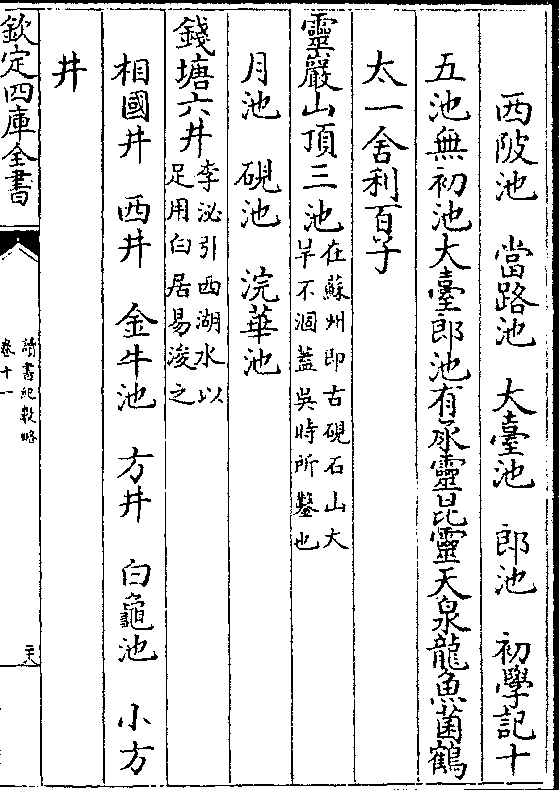 西陂池　當路池　大臺池　郎池　初學記十
五池無初池大臺郎池有承靈昆靈天泉龍魚菌鶴
太一舍利百子
靈巖山頂三池在蘇州即古硯石山大
旱不涸蓋吳時所鑿也
月池　硯池　浣華池
錢塘六井李泌引西湖水以
足用白居易浚之
相國井　西井　金牛池　方井　白龜池　小方
井
欽定四庫全書
讀書紀數略
卷十一
二十八